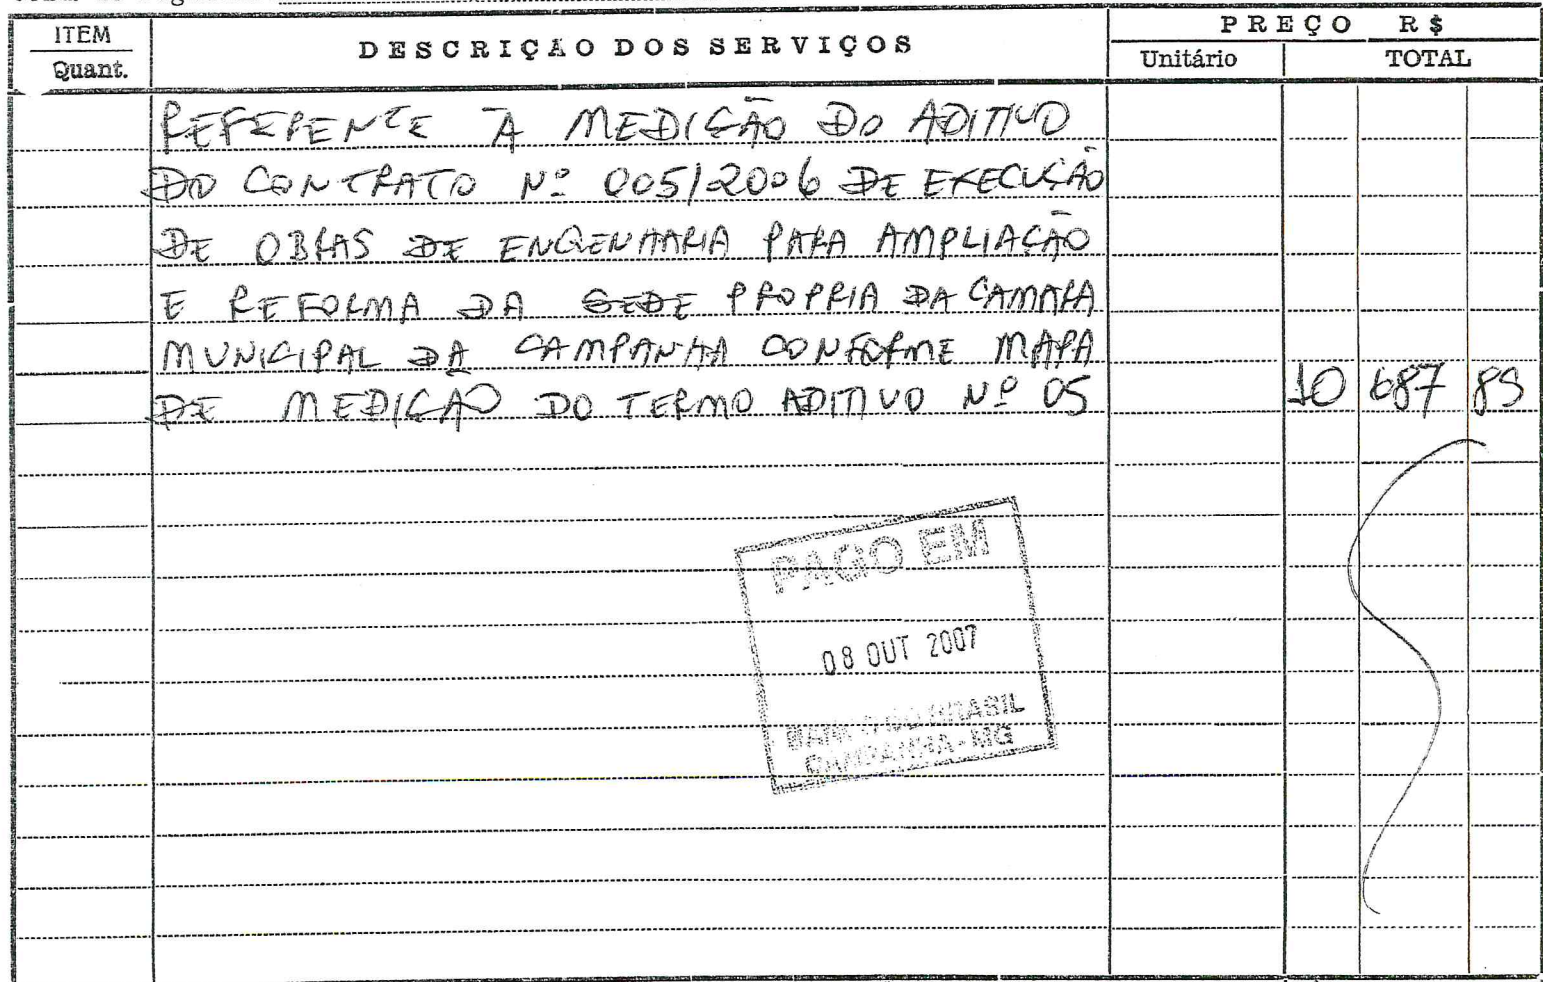 ITEM
Quant.
DESCRIÇÃO DOS SERVIÇOS
PREÇO R$
Unitário
TOTAL
REFERENTE A MEDIÇÃO DO ADITIVO
DO CONTRATO Nº 005/2006 DE EXECUÇÃO
DE OBRAS DE ENGENHARIA PARA AMPLIAÇÃO
E REFORMA DA SEDE PROPRIA DA CAMARA
MUNICIPAL DA CAMPANHA CONFORME MAPA
DE MEDIÇÃO DO TERMO ADITIVO Nº 05 10 687
PAGO EM
08 OUT 2007
BANCO DO BRASIL
CAMPANHA-MG